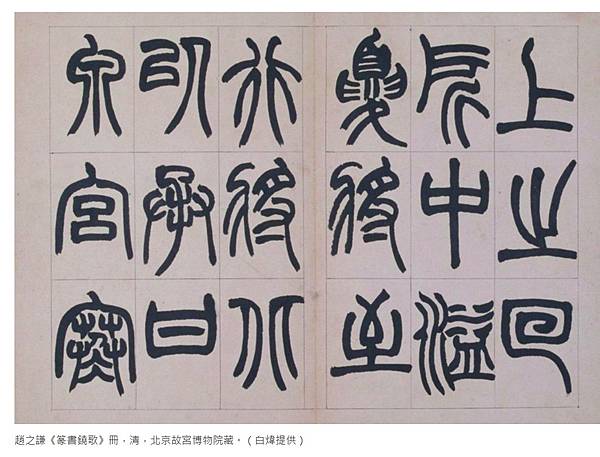 上之回
所中溢
夏將至
行將北
以承甘
泉宮寒
趙之謙《篆書鐃歌》冊，清，北京故宮博物院藏。（白煒提供）